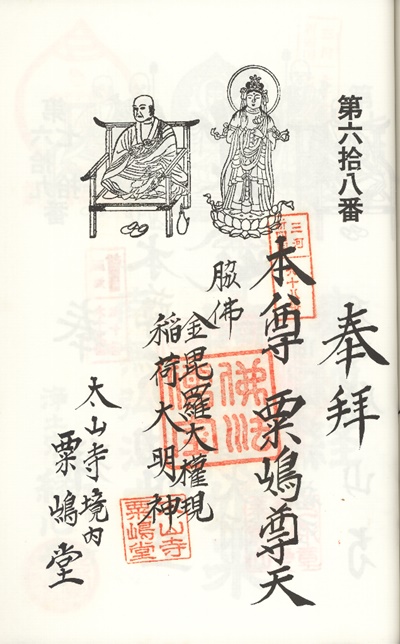 第六拾八番
奉拜
本尊 粟嶋尊天
脇佛
金毘羅大權現
稲荷大明神
太山寺境内
粟嶋堂
三河
佛法
山寺
粟嶋堂